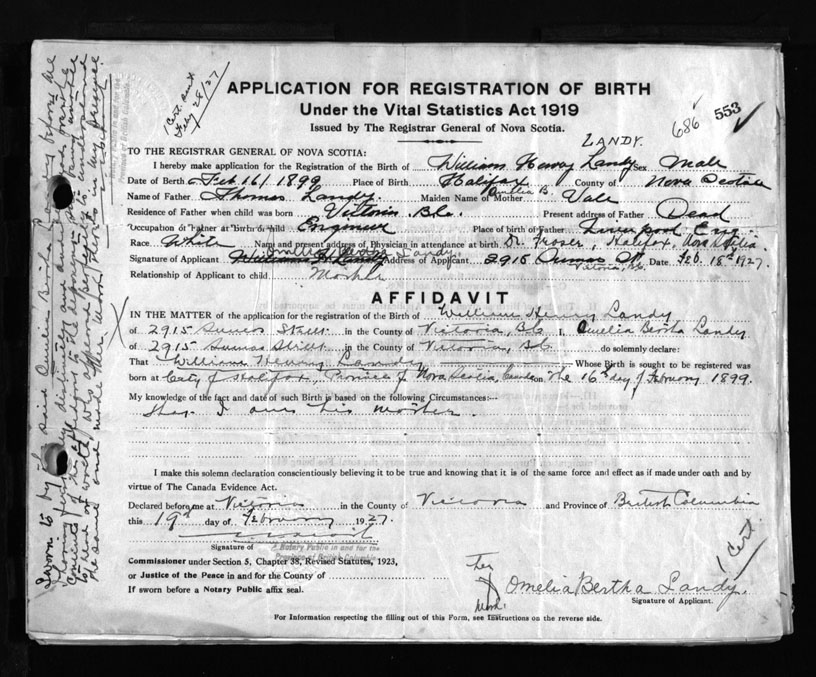 1 Cert. sent
Feb 28/27
APPLICATION FOR REGISTRATION OF BIRTH
Under the Vital Statistics Act 1919
Issued by The Registrar General of Nova Scotia.
686
553
LANDY.
TO THE REGISTRAR GENERAL OF NOVA SCOTIA:
I hereby make application for the Registration of the Birth of William Henry Landy Sex Male
Date of Birth Feb 16/1899 Place of Birth Halifax County of Nova Scotia
Name of Father Thomas Landy Maiden Name of Mother Amelia B. Vale
Residence of Father when child was born Victoria B.C. Present address of Father Dead
Occupation of Father at Birth of child Engineer Place of birth of Father Liverpool Eng.
Race White Name and present address of Physician in attendance at birth Dr. Halifax, Nova Scotia
Omelia Bertha Landy.
Signature of Applicant William H. Landy Address of Applicant 2915 St. Date Feb. 18th 1927.
Victoria, B.C.
Relationship of Applicant to child Mother
AFFIDAVIT
IN THE MATTER of the application for the registration of the Birth of William Henry Landy
of 2915 Sumas Street in the County of Victoria, B.C. I, Amelia Bertha Landy
of 2915 Sumas Street in the County of Victoria, B.C. do solemnly declare:
That William Henry Landy Whose Birth is sought to be registered was
born at City of Halifax, Province of Nova Scotia, on the 16th day of February 1899.
My knowledge of the fact and date of such Birth is based on the following Circumstances:—
that I am his mother.
I make this solemn declaration conscientiously believing it to be true and knowing that it is of the same force and effect as if made under oath and by
virtue of The Canada Evidence Act.
Declared before me at Victoria in the County of Victoria and Province of British Columbia
this 19th day of February 1927.
Signature of
A Notary Public in and for the
Province of British Columbia
Commissioner under Section 5, Chapter 38, Revised Statutes, 1923,
or Justice of the Peace in and for the County of
If sworn before a Notary Public affix seal.
1 Cert.
her
Mark.
Omelia Bertha Landy.
Signature of Applicant.
For Information respecting the filling out of this Form, see Instructions on the reverse side.
Sworn to by the said Amelia Bertha Landy before me